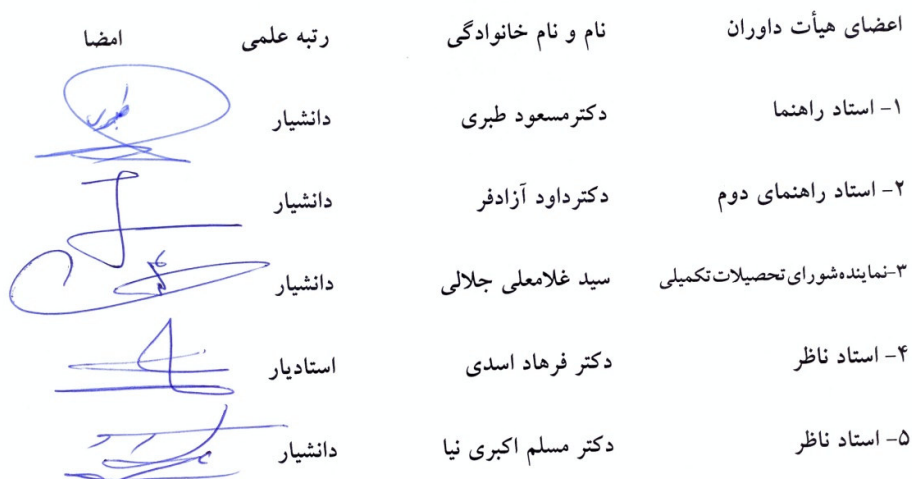 اعضای هیأت داوران نام و نام خانوادگی رتبه علمی امضا
۱- استاد راهنما دکترمسعود طبری دانشیار
۲- استاد راهنمای دوم دکترداود آزادفر دانشیار
۳-نماینده‌شورای‌تحصیلات‌تکمیلی سید غلامعلی جلالی دانشیار
۴- استاد ناظر دکتر فرهاد اسدی استادیار
۵- استاد ناظر دکتر مسلم اکبری نیا دانشیار